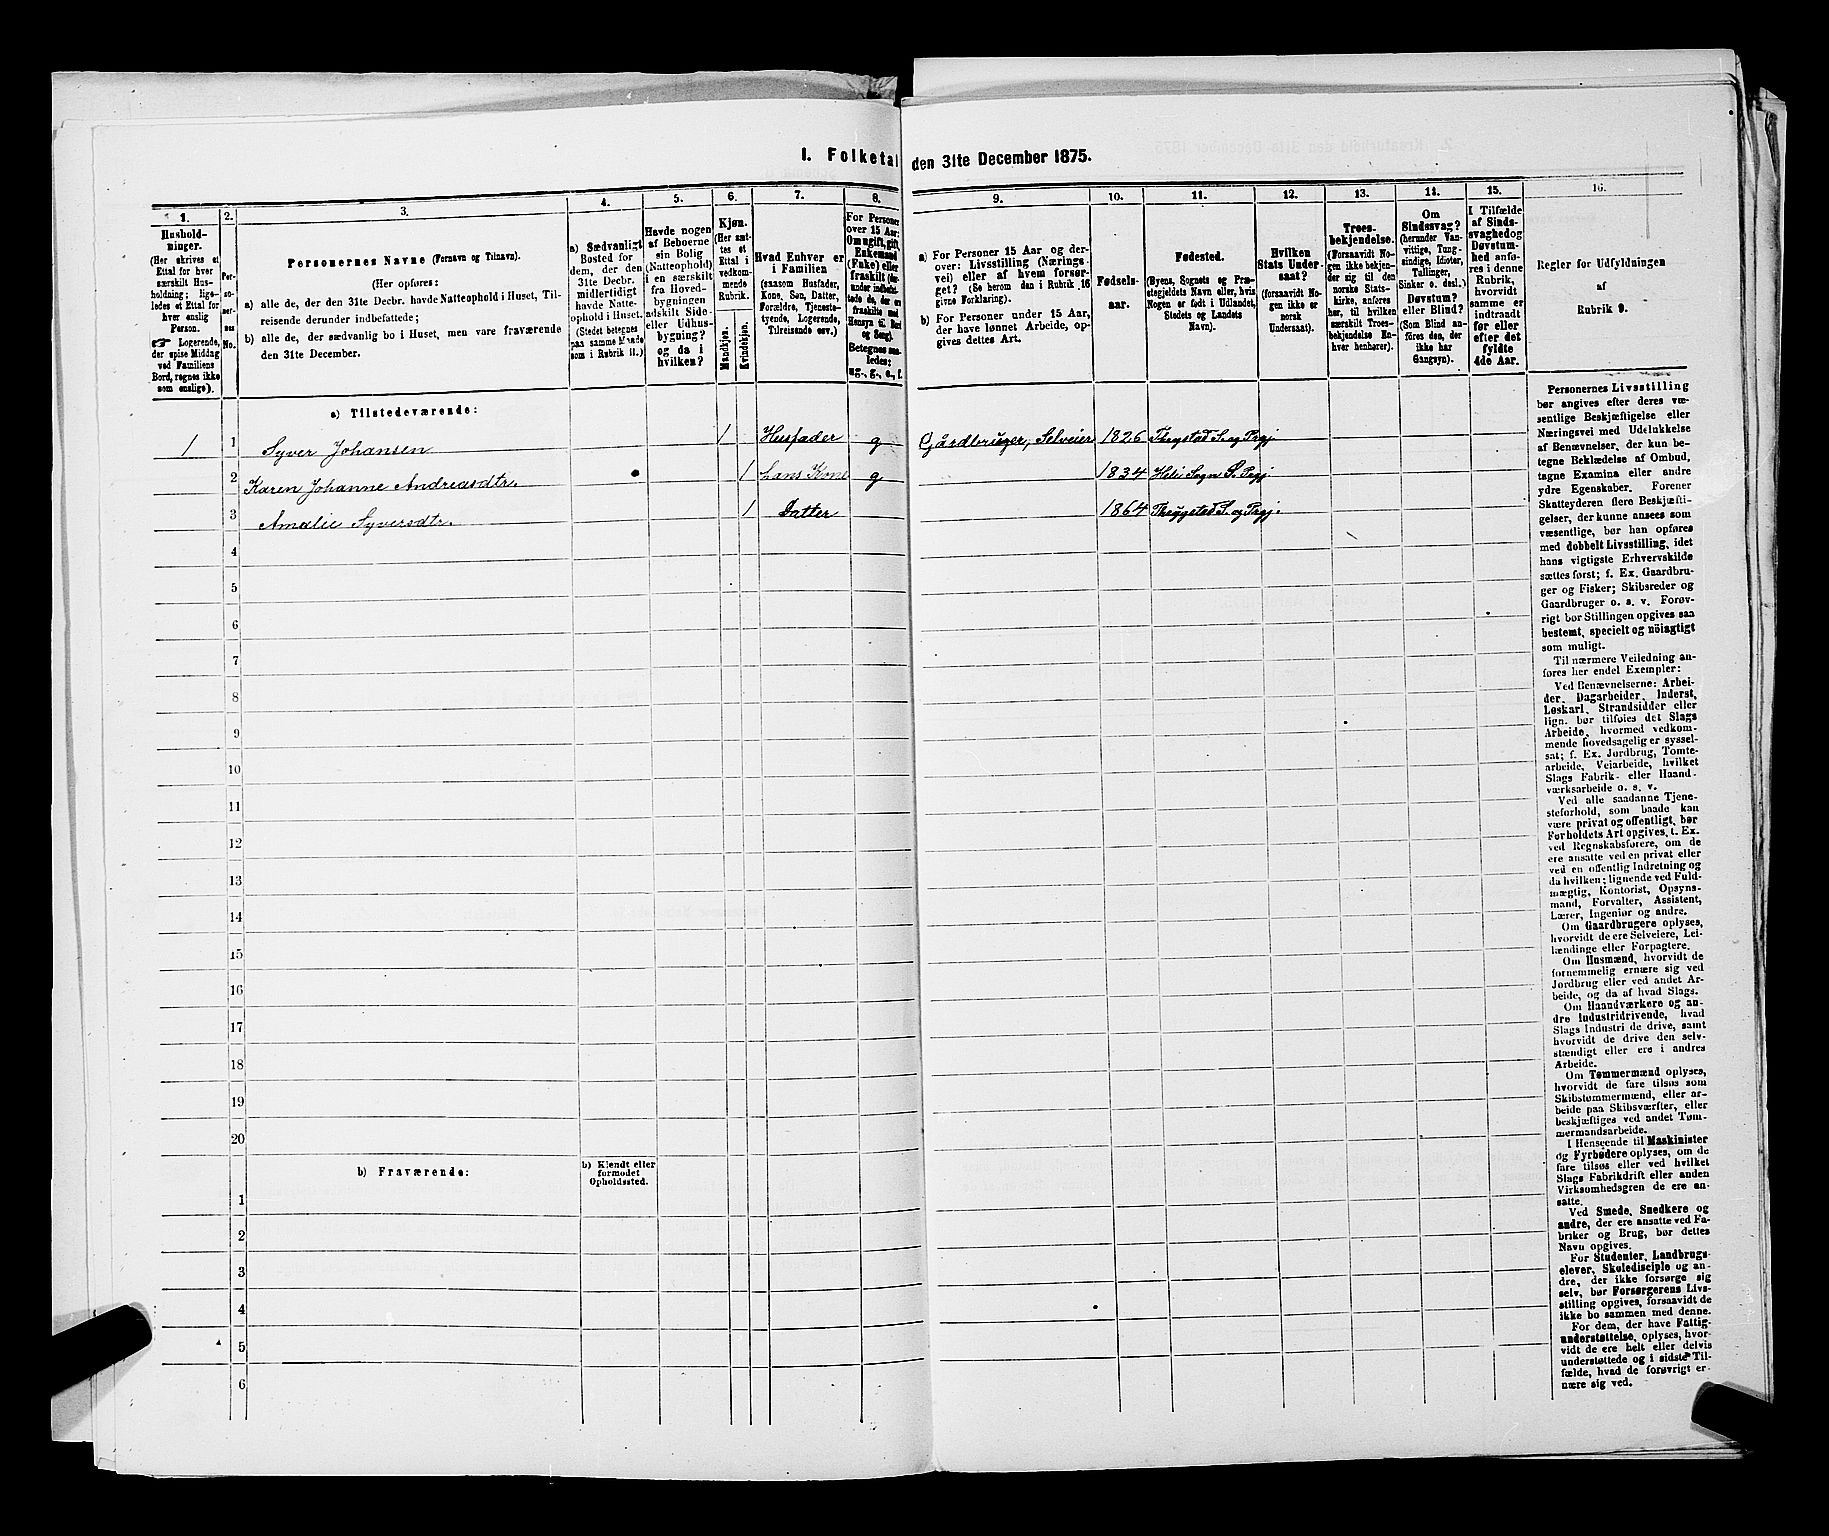 I. Folketal den 31te December 1875.
1.
Hushold-
ninger.
(Her skrives et
Ettal for hver
særskilt Hus-
holdning; lige-
ledes et Ettal for
hver enslig
Person.
☞ Logerende,
der spise Middag
ved Familiens
Bord, regnes ikke
som enslige).
2.
Per-
so-
ner-
nes
No.
3.
Personernes Navne (Fornavn og Tilnavn).
(Her opføres:
a) alle de, der den 31te Decbr. havde Natteophold i Huset, Til-
reisende derunder indbefattede;
b) alle de, der sædvanlig bo i Huset, men vare fraværende
den 31te December.
4.
a) Sædvanligt
Bosted for
dem, der den
31te Decbr.
midlertidigt
havde Natte-
ophold i Huset.
(Stedet betegnes
paa samme Maade
som i Rubrik 11.)
5.
Havde nogen
af Beboerne
sin Bolig
(Natteophold)
i en særskilt
fra Hoved-
bygningen
adskilt Side-
eller Udhus-
bygning?
og da i
hvilken?
6.
Kjøn.
(Her sæt-
tes et
Ettal i
vedkom-
mende
Rubrik.
Mandkjøn.
Kvindekjøn.
7.
Hvad Enhver er
i Familien
(saasom Husfader,
Kone, Søn, Datter,
Forældre, Tjeneste-
tyende, Logerende,
Tilreisende osv.)
8.
For Personer
over 15 Aar:
Om ugift, gift,
Enkemand
(Enke) eller
fraskilt
Betegnes saa-
ledes:
ug., g., e., f.
9.
a) For Personer 15 Aar og der-
over: Livsstilling (Nærings-
vei) eller af hvem forsør-
get? (Se herom den i Rubrik 16
givne Forklaring).
b) For Personer under 15 Aar,
der have lønnet Arbeide, op-
gives dettes Art.
10.
Fødsels-
aar.
11.
Fødested.
(Byens, Sognets og Præ-
stegjeldets Navn eller, hvis
Nogen er født i Udlandet,
Stedets og Landets
Navn).
12.
Hvilken
Stats Under-
saat?
(forsaavidt No-
gen ikke er
norsk
Undersaat).
13.
Troes-
bekjendelse.
(Forsaavidt No-
gen ikke bekjen-
der sig til den
norske Stats-
kirke, anføres
her, til hvilken
særskilt Troes-
bekjendelse En-
hver henhører).
14.
Om
Sindssvag?
(herunder Van-
vittige, Tung-
sindige, Idioter,
Tullinger,
Sinker o. desl.)
Døvstum?
eller Blind?
(Som Blind an-
føres den, der
ikke har
Gangsyn).
15.
I Tilfælde
af Sinds-
svaghed og
Døvstum-
hed anfø-
res i denne
Rubrik,
hvorvidt
samme er
indtraadt
før eller
efter det
fyldte
4de Aar.
16.
Regler for Udfyldningen
af
Rubrik 9.
a) Tilstedeværende:
1 1 Syver Johansen 1 Husfader g Gårdbruger, Selveier 1826
2 Karen Johanne Andreasdtr. 1 hans Kone g 1834
3 Amalie Syversdtr. 1 Datter 1864
4
5
6
7
8
9
10
11
12
13
14
15
16
17
18
19
20
b) Fraværende:
b) Kjendt eller
formodet
Opholdssted.
1
2
3
4
5
6
Personernes Livsstilling
bør angives efter deres væ-
sentlige Beskjæftigelse eller
Næringsvei med Udelukkelse
af Benævnelser, der kun be-
tegne Beklædelse af Ombud,
tagne Examina eller andre
ydre Egenskaber. Forener
Skatteyderen flere Beskjæfti-
gelser, der kunne ansees som
væsentlige, bør han opføres
med dobbelt Livsstilling, idet
hans vigtigste Erhvervskilde
sættes først; f. Ex. Gaardbru-
ger og Fisker; Skibsreder og
Gaardbruger o. s. v. Forøv-
rigt bør Stillingen opgives saa
bestemt, specielt og nöiagtigt
som muligt.
Til nærmere Veiledning an-
føres her endel Exempler:
Ved Benævnelserne: Arbei-
der, Dagarbeider, Inderst,
Løskarl, Strandsidder eller
lign. bør tilføies det Slags
Arbeide, hvormed vedkom-
mende hovedsagelig er syssel-
sat; f. Ex. Jordbrug, Tomte-
arbeide, Veiarbeide, hvilket
Slags Fabrik- eller Haand-
værksarbeide o. s. v.
Ved alle saadanne Tjene-
steforhold, som baade kan
være privat og offentligt, bør
Forholdets Art opgives, t. Ex.
ved Regnskabsførere, om de
ere ansatte ved en privat eller
ved en offentlig Indretning og
da hvilken; lignende ved Fuld-
mægtig, Kontorist, Opsyns-
mand, Forvalter, Assistent,
Lærer, Ingeniør og andre.
Om Gaardbrugere oplyses,
hvorvidt de ere Selveiere, Lei-
lændinge eller Forpagtere.
Om Husmænd, hvorvidt de
fornemmelig ernære sig ved
Jordbrug eller ved andet Ar-
beide, og da af hvad Slags.
Om Haandværkere og an-
dre Industridrivende, hvad
Slags Industri de drive, samt
hvorvidt de drive den selv-
stændigt eller ere i andres
Arbeide.
Om Tømmermænd oplyses,
hvorvidt de fare tilsøs som
Skibstømmermænd, eller ar-
beide paa Skibsværfter, eller
beskjæftiges ved andet Tøm-
mermandsarbeide.
I Henseende til Maskinister
og Fyrbødere oplyses, om de
fare tilsøs eller ved hvilket
Slags Fabrikdrift eller anden
Virksomhedsgren de ere an-
satte.
Ved Smede, Snedkere og
andre, der ere ansatte ved Fa-
briker og Brug, bør dettes
Navn opgives.
For Studenter, Landbrugs-
elever, Skoledisciple og an-
dre, der ikke forsørge sig
selv, bør Forsørgerens Livs-
stilling opgives, forsaavidt de
ikke bo sammen med denne.
For dem, der have Fattig-
understøttelse, oplyses, hvor-
vidt de ere helt eller delvis
understøttede og i sidste Til-
fælde, hvad de forøvrigt er-
nære sig ved.